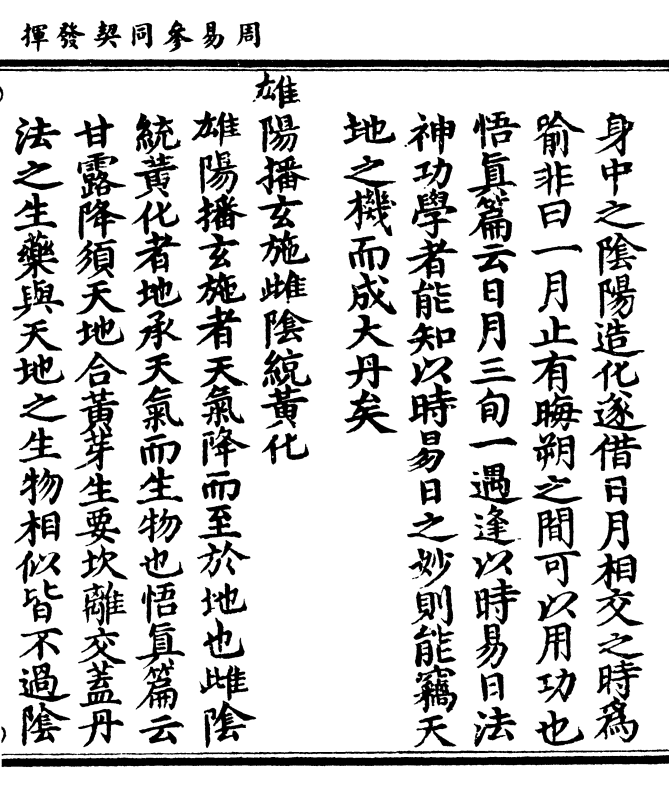 周易參同契發揮
身中之陰陽造化遂借日月相交之時爲
喻非曰一月止有晦朔之間可以用功也
悟眞篇云日月三旬一遇逢以時易日法
神功學者能知以時易日之妙則能竊天
地之機而成大丹矣
雄陽播玄施雌陰統黃化
雄陽播玄施者天氣降而至於地也雌陰
統黃化者地承天氣而生物也悟眞篇云
甘露降須天地合黃芽生要坎離交蓋丹
法之生藥與天地之生物相似皆不過陰